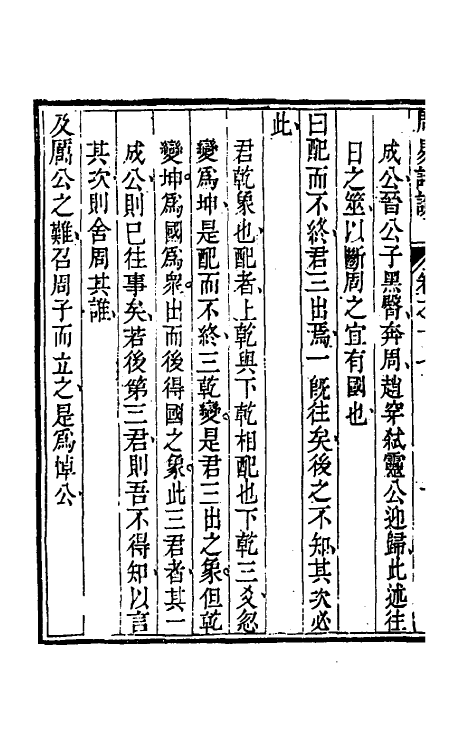 成公晉公子黑臀奔周趙穿弑靈公迎歸此述往
日之筮以斷周之宜有國也
曰配而不終君三出焉一旣往矣後之不知其次必
此
君乾象也配者上乾與下乾相配也下乾三爻忽
變爲坤是配而不終三乾變是君三出之象但乾
變坤爲國爲衆出而後得國之象此三君者其一
成公則已往事矣若後第三君則吾不得知以言
其次則舍周其誰
及厲公之難召周子而立之是爲悼公